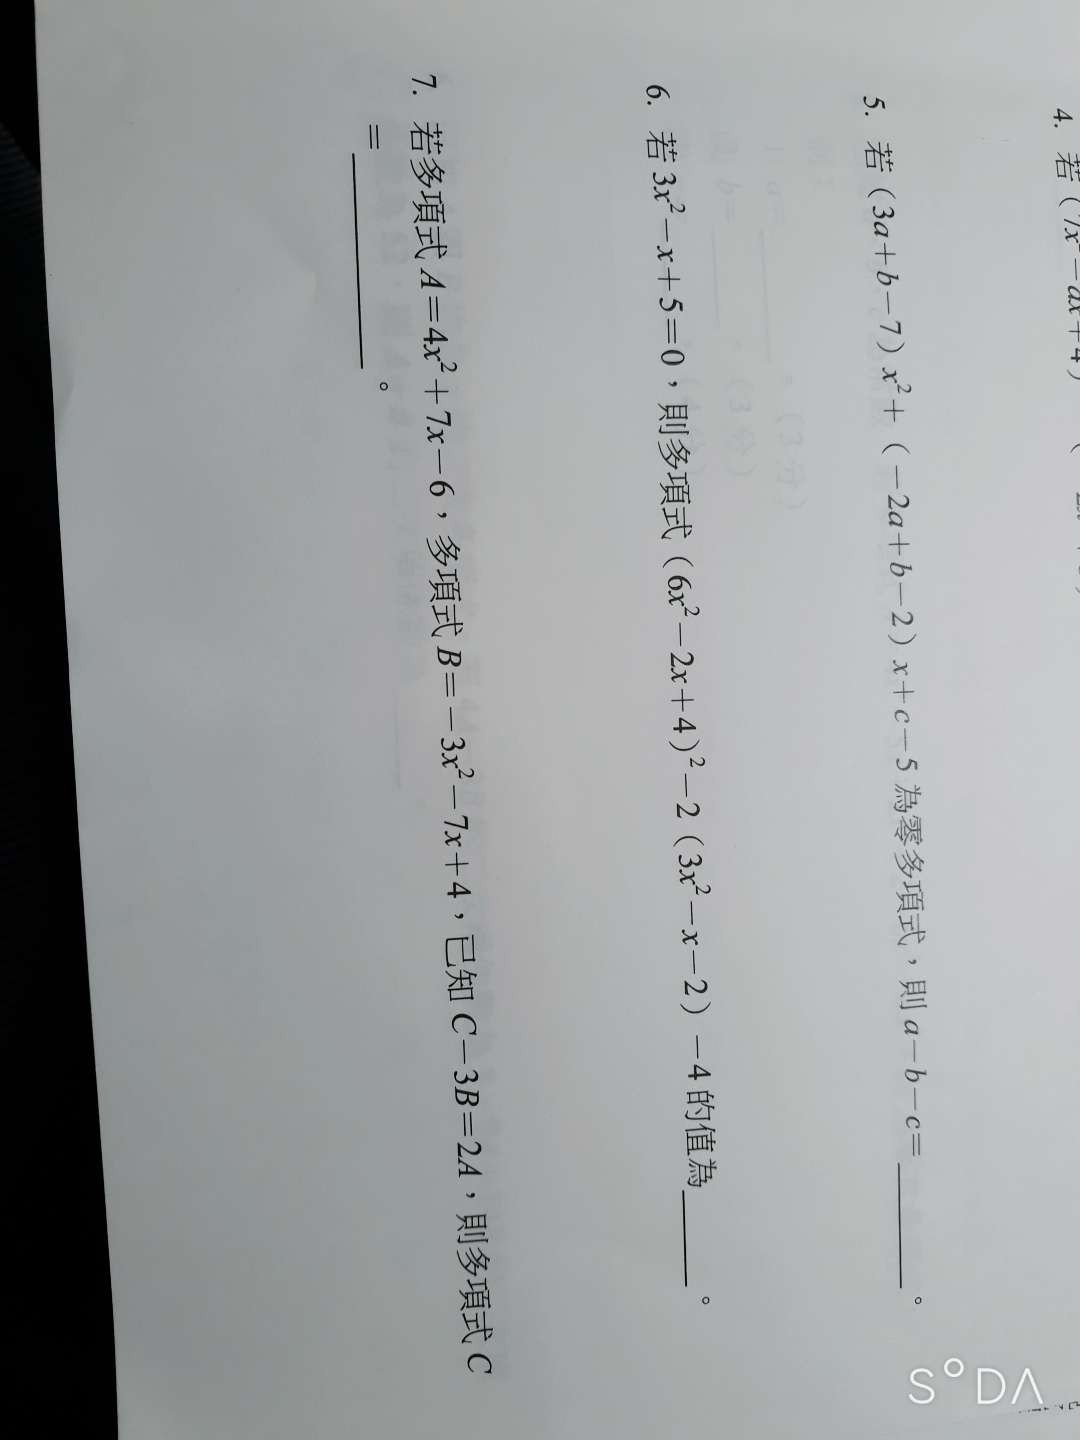 4. 若(7x²－ax＋4)
5. 若(3a＋b－7)x²＋(－2a＋b－2)x＋c－5為零多項式，則a－b－c＝＿＿＿＿。
6. 若3x²－x＋5＝0，則多項式(6x²－2x＋4)²－2(3x²－x－2)－4的值為＿＿＿＿。
7. 若多項式A＝4x²＋7x－6，多項式B＝－3x²－7x＋4，已知C－3B＝2A，則多項式C
＝＿＿＿＿。
SODA